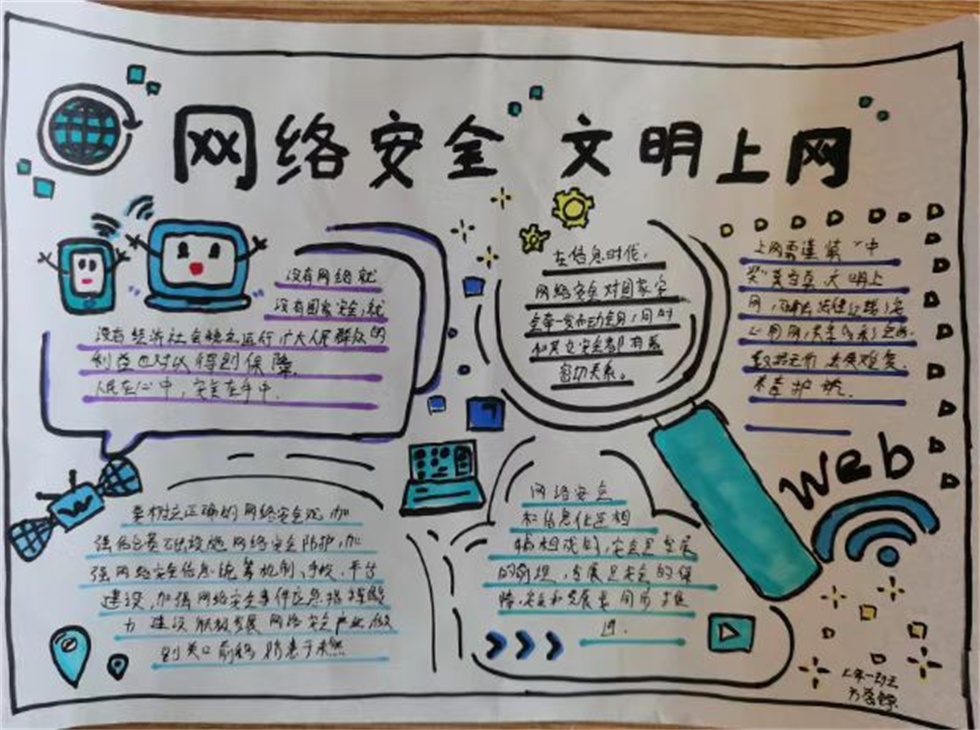 网络安全 文明上网
没有网络就
没有国家安全,就
没有经济社会稳定运行,广大人民群众的
利益也难以得到保障.
人民在心中,安全在手中.
在信息时代,
网络安全对国家安
全牵一发而动全身,同时
和其它安全都有着
密切关系。
上网需谨慎
文明上
网
Web
要树立正确的网络安全观,加
强信息基础设施网络安全防护,加
强网络安全信息统筹机制、手段、平台
建设,加强网络安全事件应急指挥能
力建设,积极发展网络安全产业,做
到关口前移,防患于未然
网络安全
和信息化是相
辅相成的,安全是发展
的前提,发展是安全的保
障,安全和发展要同步推
进.